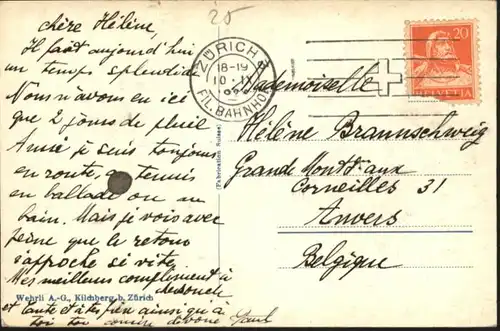 25
chère Hélène,
Il fait aujourd'hui
un temps splendide
Nous n'avons eu ici
que 2 jours de pluie
Aussi je suis toujours
en route, au tennis
en ballade ou au
bain. Mais je vois avec
peine que le retour
s'approche si vite.
Mes meilleurs compliments à
et tante et à tes frères ainsi qu'à
toi ton cousin dévoué Paul
Wehrli A.-G., Kilchberg b. Zürich
(Fabrication Suisse)
ZÜRICH 2
18-19
10. IX.
FIL. BAHNHOF
20
HELVETIA
Mademoiselle
Hélène Braunschweig
Grande Montée aux
Corneilles 31
Anvers
Belgique